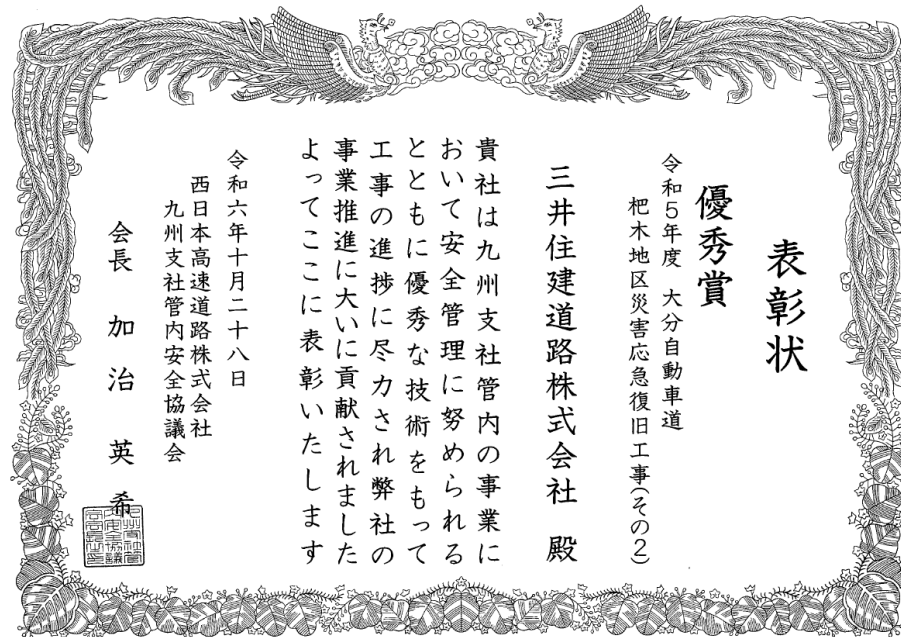 表彰状
優秀賞
令和5年度 大分自動車道
杷木地区災害応急復旧工事(その2)
三井住建道路株式会社 殿
貴社は九州支社管内の事業に
おいて安全管理に努められる
とともに優秀な技術をもって
工事の進捗に尽力され弊社の
事業推進に大いに貢献されました
よってここに表彰いたします
令和六年十月二十八日
西日本高速道路株式会社
九州支社管内安全協議会
会長 加治英希